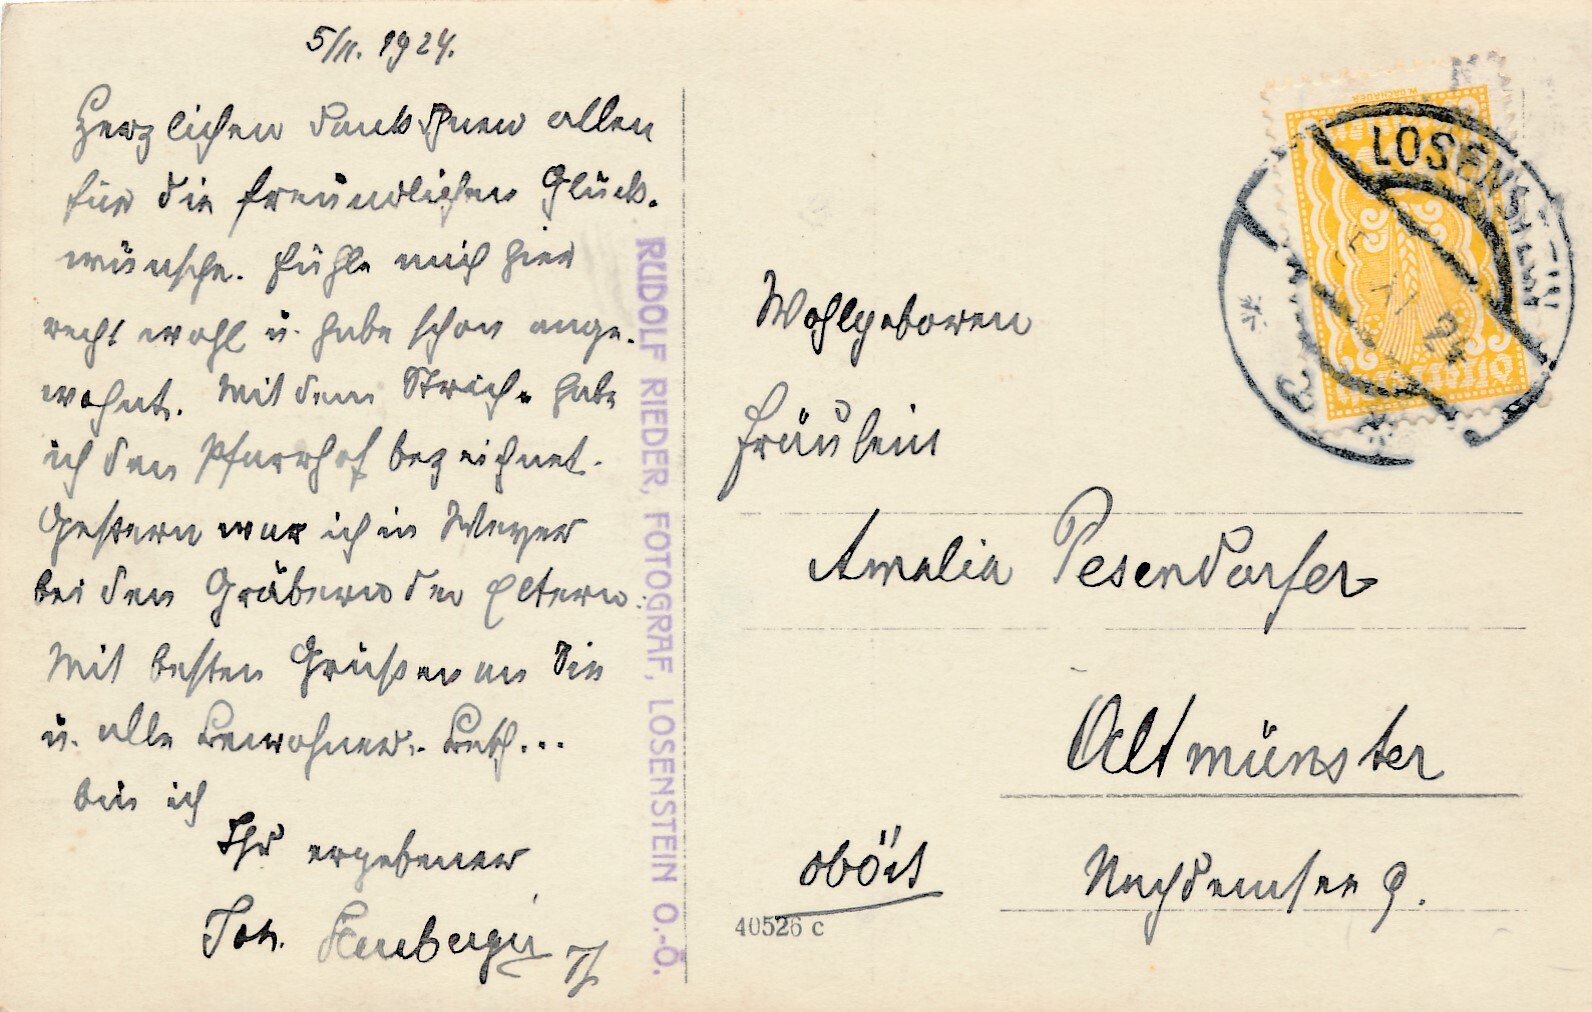 5/11. 1924.
Herzlichen Dank Ihnen allen
für die freundlichen Glück-
wünsche. Fühle mich hier
recht wohl u. habe schon ange-
wohnt. Mit dem Strich - habe
ich den Pfarrhof bezeichnet.
Gestern war ich in Weyer
bei den Gräbern der Eltern.
Mit besten Grüßen an Sie
u. alle Bewohner
bin ich
Ihr ergebener
Joh.
RUDOLF RIEDER, FOTOGRAF, LOSENSTEIN O.-Ö.
LOSENSTEIN
5 XI 24
Wohlgeboren
Fräulein
Amalia Pesendorfer
Altmünster
Nachdemsee 9.
oböst
40526 c